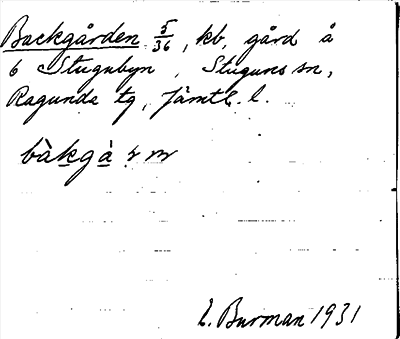 Backgården 5/36, kb, gård å
6 Stugubyn, Stuguns sn,
Ragunda tg, Jämtl. l.
bàkgà
E. Burman 1931